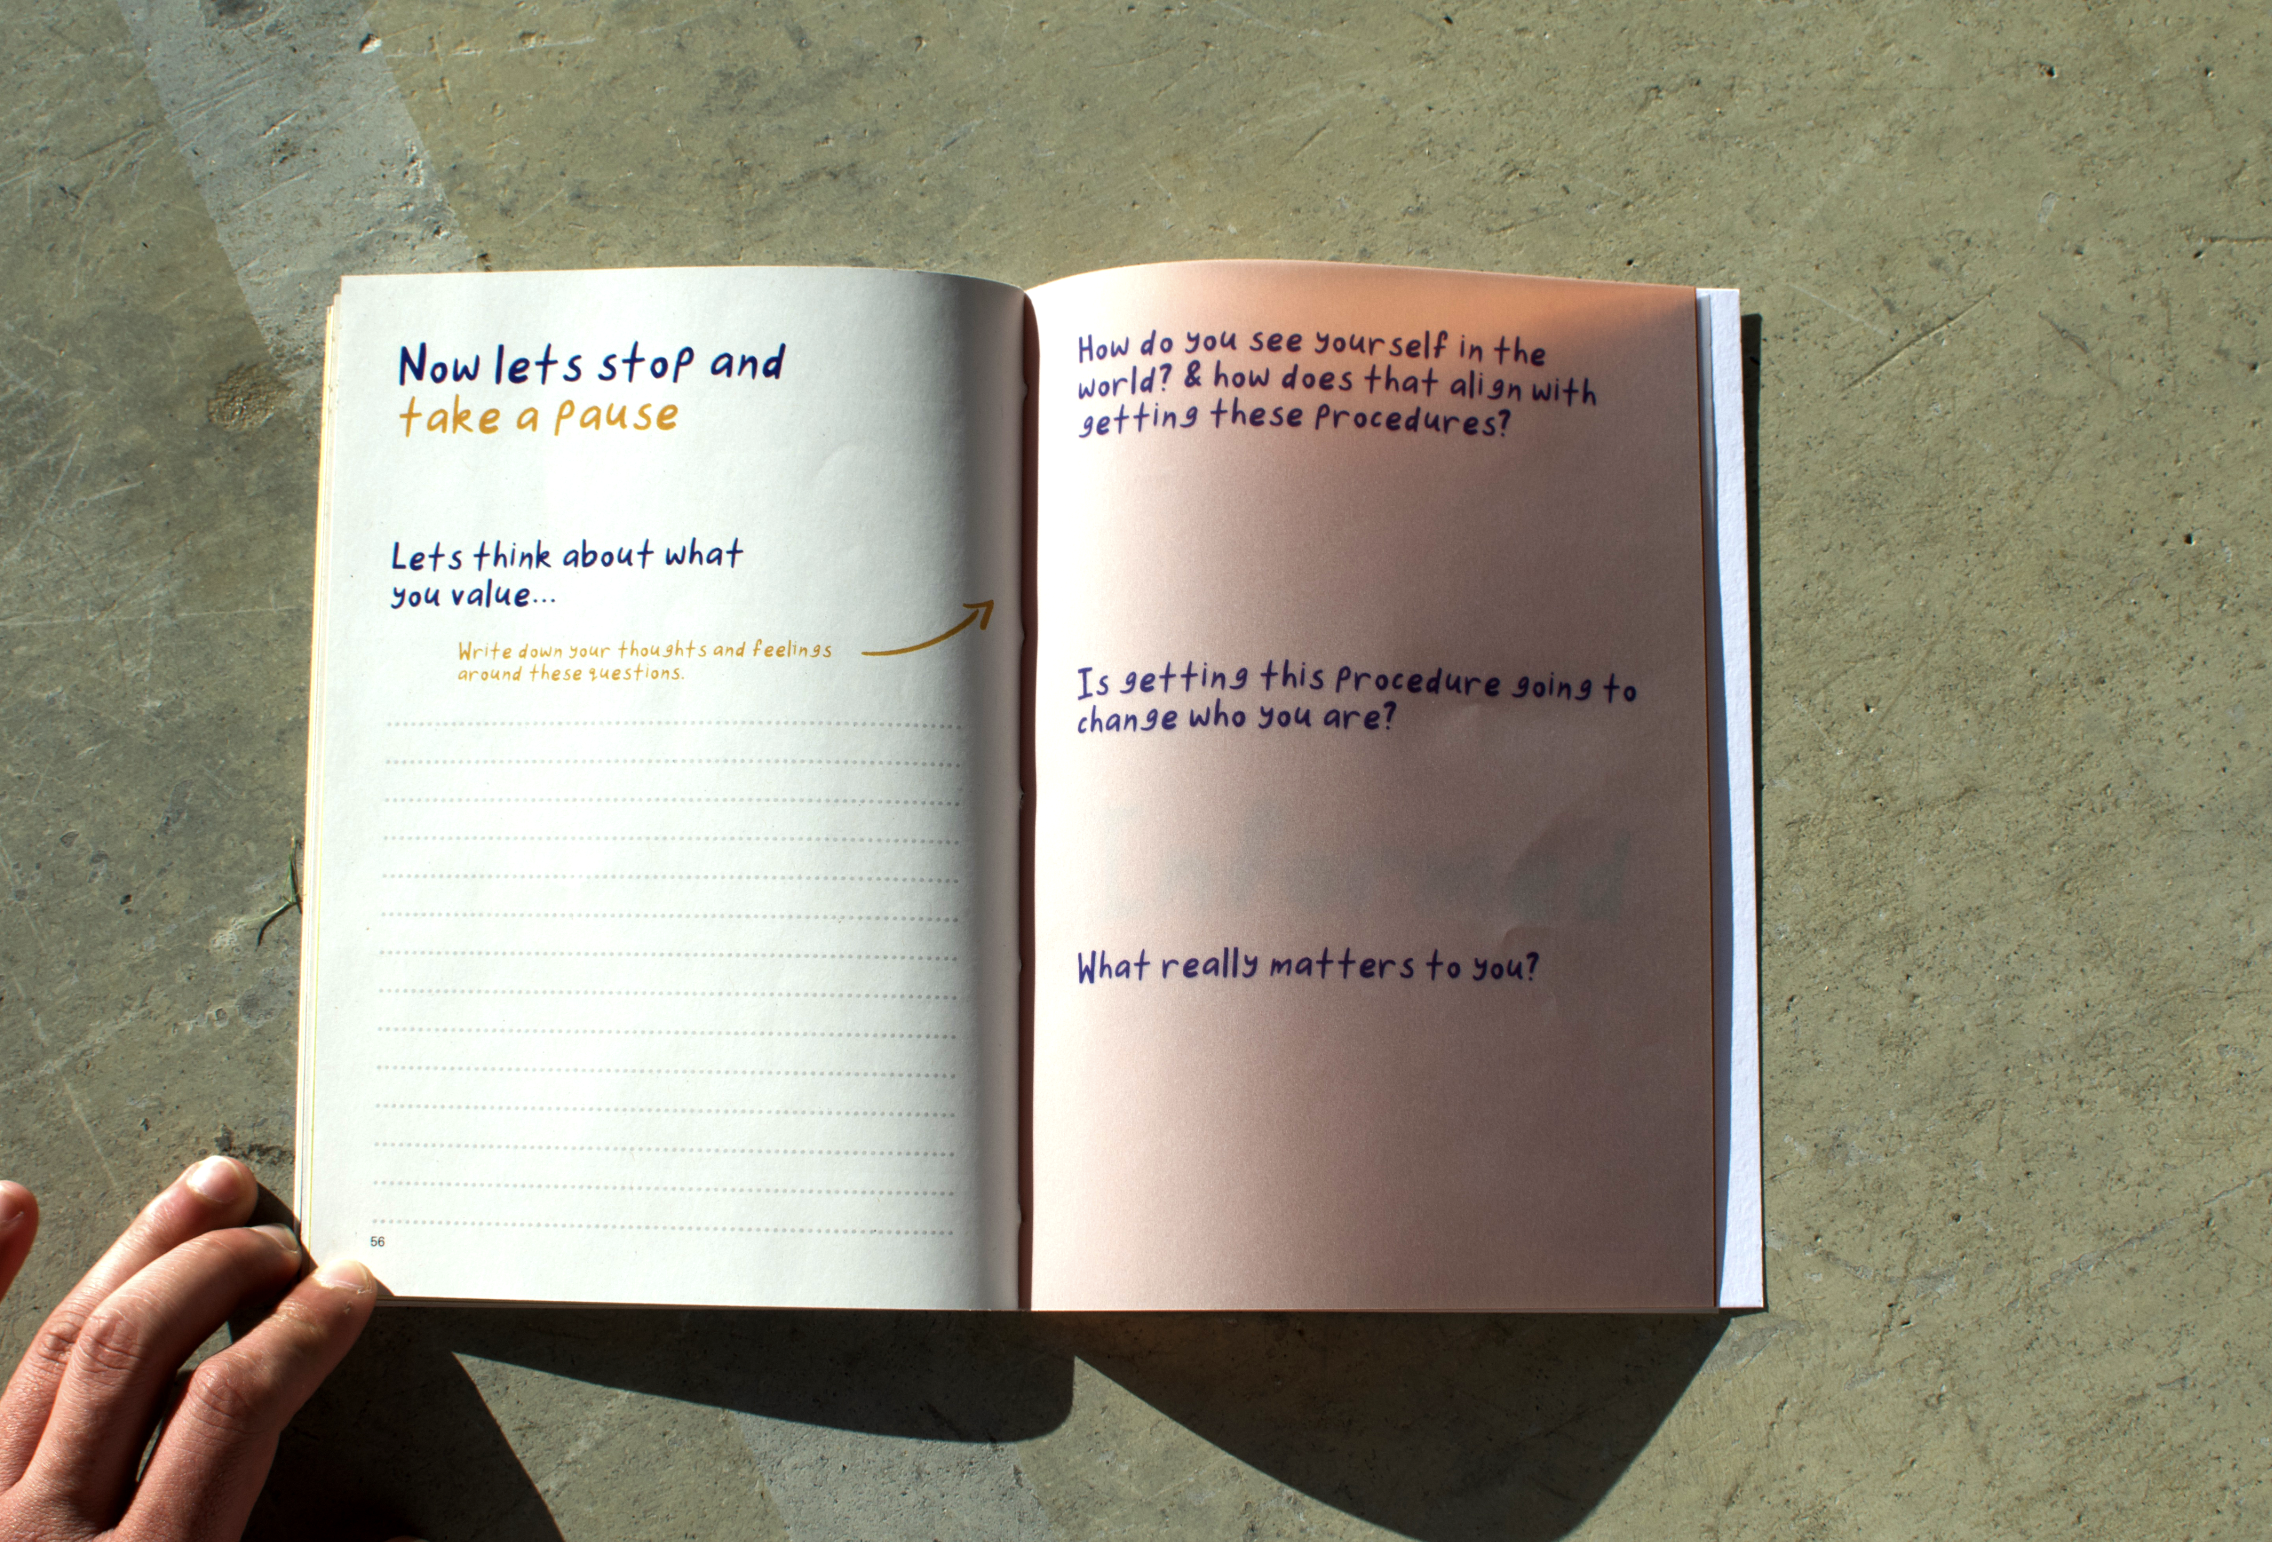 Now lets stop and
take a pause
Lets think about what
you value...
Write down your thoughts and feelings
around these questions.
56
How do you see yourself in the
world? & how does that align with
getting these procedures?
Is getting this procedure going to
change who you are?
What really matters to you?